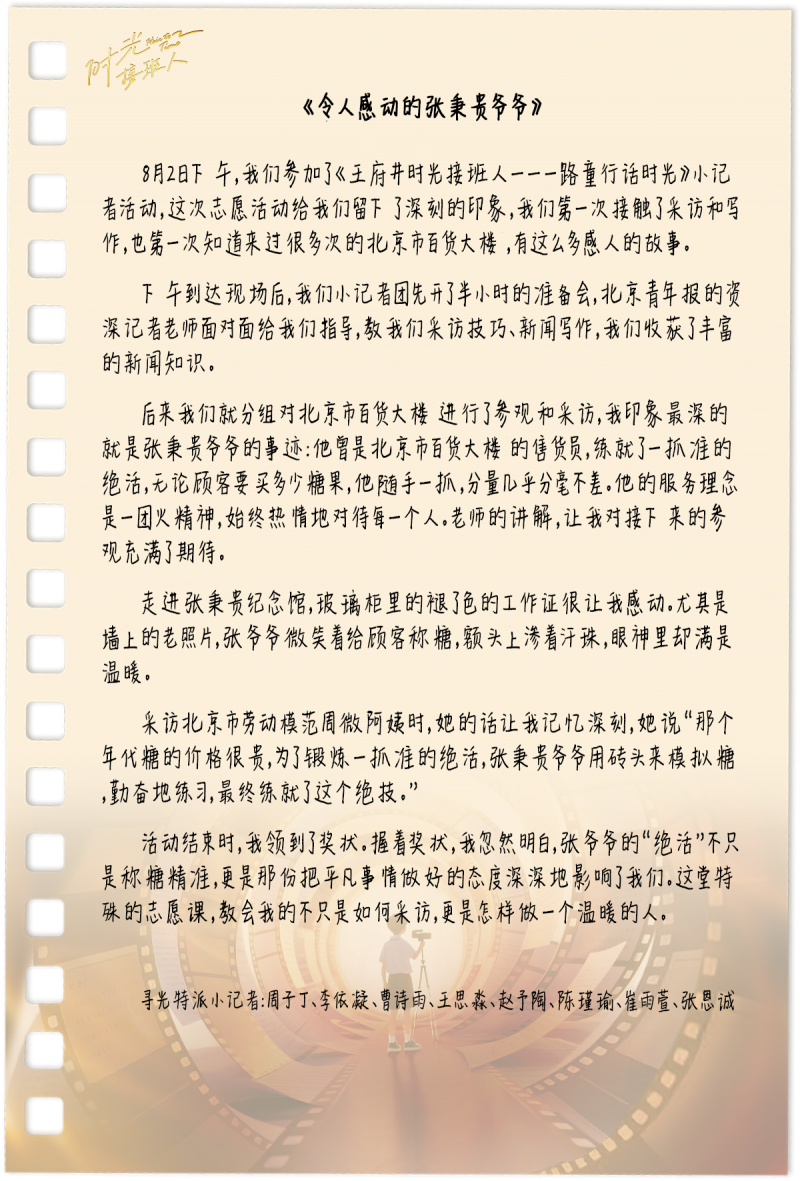 时光
接班人
《令人感动的张秉贵爷爷》
8月2日下 午,我们参加了《王府井时光接班人一一一路童行话时光》小记
者活动,这次志愿活动给我们留下 了深刻的印象,我们第一次接触了采访和写
作,也第一次知道来过很多次的北京市百货大楼 ,有这么多感人的故事。
下 午到达现场后,我们小记者团先开了半小时的准备会,北京青年报的资
深记者老师面对面给我们指导,教我们采访技巧、新闻写作,我们收获了丰富
的新闻知识。
后来我们就分组对北京市百货大楼 进行了参观和采访,我印象最深的
就是张秉贵爷爷的事迹:他曾是北京市百货大楼 的售货员,练就了一抓准的
绝活,无论顾客要买多少糖果,他随手一抓,分量几乎分毫不差。他的服务理念
是一团火精神,始终热情地对待每一个人。老师的讲解,让我对接下 来的参
观充满了期待。
走进张秉贵纪念馆,玻璃柜里的褪了色的工作证很让我感动。尤其是
墙上的老照片,张爷爷微笑着给顾客称糖,额头上渗着汗珠,眼神里却满是
温暖。
采访北京市劳动模范周微阿姨时,她的话让我记忆深刻,她说“那个
年代糖的价格很贵,为了锻炼一抓准的绝活,张秉贵爷爷用砖头来模拟糖
,勤奋地练习,最终练就了这个绝技。”
活动结束时,我领到了奖状。握着奖状,我忽然明白,张爷爷的“绝活”不只
是称糖精准,更是那份把平凡事情做好的态度深深地影响了我们。这堂特
殊的志愿课,教会我的不只是如何采访,更是怎样做一个温暖的人。
寻光特派小记者:周子丁、李依凝、曹诗雨、王思淼、赵予陶、陈瑾瑜、崔雨萱、张恩诚